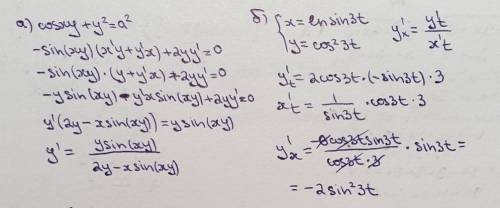 а) cosxy + y² = a²
-sin(xy)(x'y+y'x)+2yy'=0
-sin(xy)·(y+y'x)+2yy'=0
-ysin(xy)-y'xsin(xy)+2yy'=0
y'(2y-xsin(xy))=ysin(xy)
y' = ysin(xy) / 2y-xsin(xy)
б) { x=lnsin3t
y=cos²3t
y'x = y't / x't
y't = 2cos3t·(-sin3t)·3
x't = 1/sin3t · cos3t·3
y'x = -6cos3tsin3t / cos3t·3 · sin3t =
= -2sin²3t